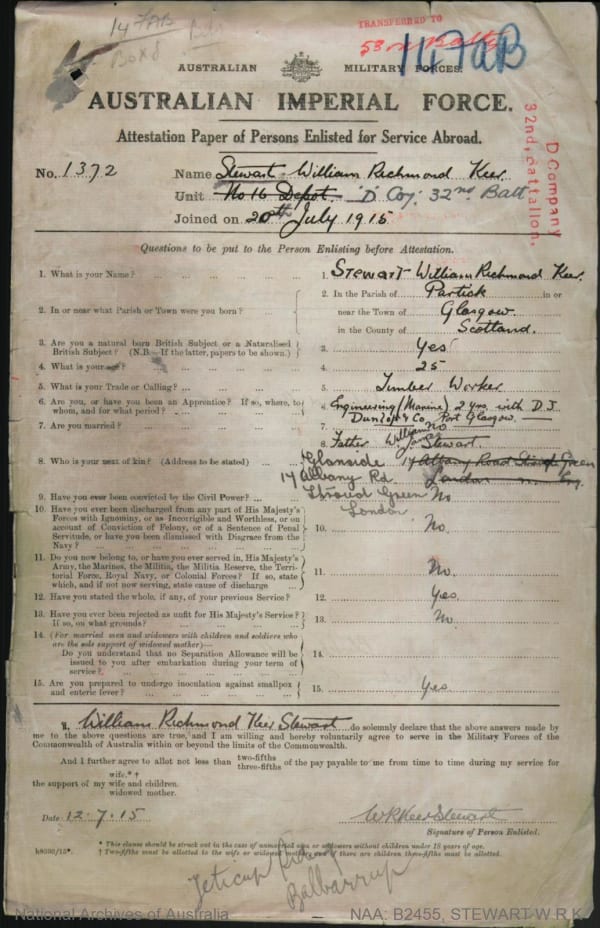 14 FAB
Box 8
TRANSFERRED TO
53rd Battn
14 FAB
AUSTRALIAN MILITARY FORCES.
AUSTRALIAN IMPERIAL FORCE.
Attestation Paper of Persons Enlisted for Service Abroad.
D Company
32nd. battalion.
No. 1372 Name Stewart William Richmond Keer.
Unit No 16 Depot. 'D' Coy: 32nd Batt
Joined on 20th July 1915
Questions to be put to the Person Enlisting before Attestation.
1. What is your Name? 1. Stewart William Richmond Keer.
2. In or near what Parish or Town were you born? 2. In the Parish of Partick in or
near the Town of Glasgow.
in the County of Scotland.
3. Are you a natural born British Subject or a Naturalised
British Subject? (N.B.—If the latter, papers to be shown.) 3. Yes
4. What is your age? 4. 25
5. What is your Trade or Calling? 5. Timber Worker
6. Are you, or have you been an Apprentice? If so, where, to
whom, and for what period? 6. Engineering (Marine) 2 yrs with D.J.
Dunlop & Co, Port Glasgow.
7. Are you married? 7. No
8. Who is your next of kin? (Address to be stated) 8. Father William James Stewart.
Glanside 14 Albany Road Stroud Green
London Eng.
17 Albany Rd
Stroud Green
London
9. Have you ever been convicted by the Civil Power? No
10. Have you ever been discharged from any part of His Majesty's
Forces with Ignominy, or as Incorrigible and Worthless, or on
account of Conviction of Felony, or of a Sentence of Penal
Servitude, or have you been dismissed with Disgrace from the
Navy? 10. No.
11. Do you now belong to, or have you ever served in, His Majesty's
Army, the Marines, the Militia, the Militia Reserve, the Terri-
torial Force, Royal Navy, or Colonial Forces? If so, state
which, and if not now serving, state cause of discharge 11. No.
12. Have you stated the whole, if any, of your previous Service? 12. Yes.
13. Have you ever been rejected as unfit for His Majesty's Service?
If so, on what grounds? 13. No
14. (For married men and widowers with children and soldiers who
are the sole support of widowed mother)—
Do you understand that no Separation Allowance will be
issued to you after embarkation during your term of
service? 14.
15. Are you prepared to undergo inoculation against smallpox
and enteric fever? 15. Yes.
I, William Richmond Keer Stewart do solemnly declare that the above answers made by
me to the above questions are true, and I am willing and hereby voluntarily agree to serve in the Military Forces of the
Commonwealth of Australia within or beyond the limits of the Commonwealth.
And I further agree to allot not less than two-fifths
three-fifths of the pay payable to me from time to time during my service for
wife.*†
the support of my wife and children.
widowed mother.
Date 12.7.15 W R Keer Stewart
Signature of Person Enlisted.
* This clause should be struck out in the case of unmarried men or widowers without children under 18 years of age.
† Two-fifths must be allotted to the wife or widowed mother, and if there are children three-fifths must be allotted.
Balbarrup
National Archives of Australia NAA: B2455, STEWART W R K